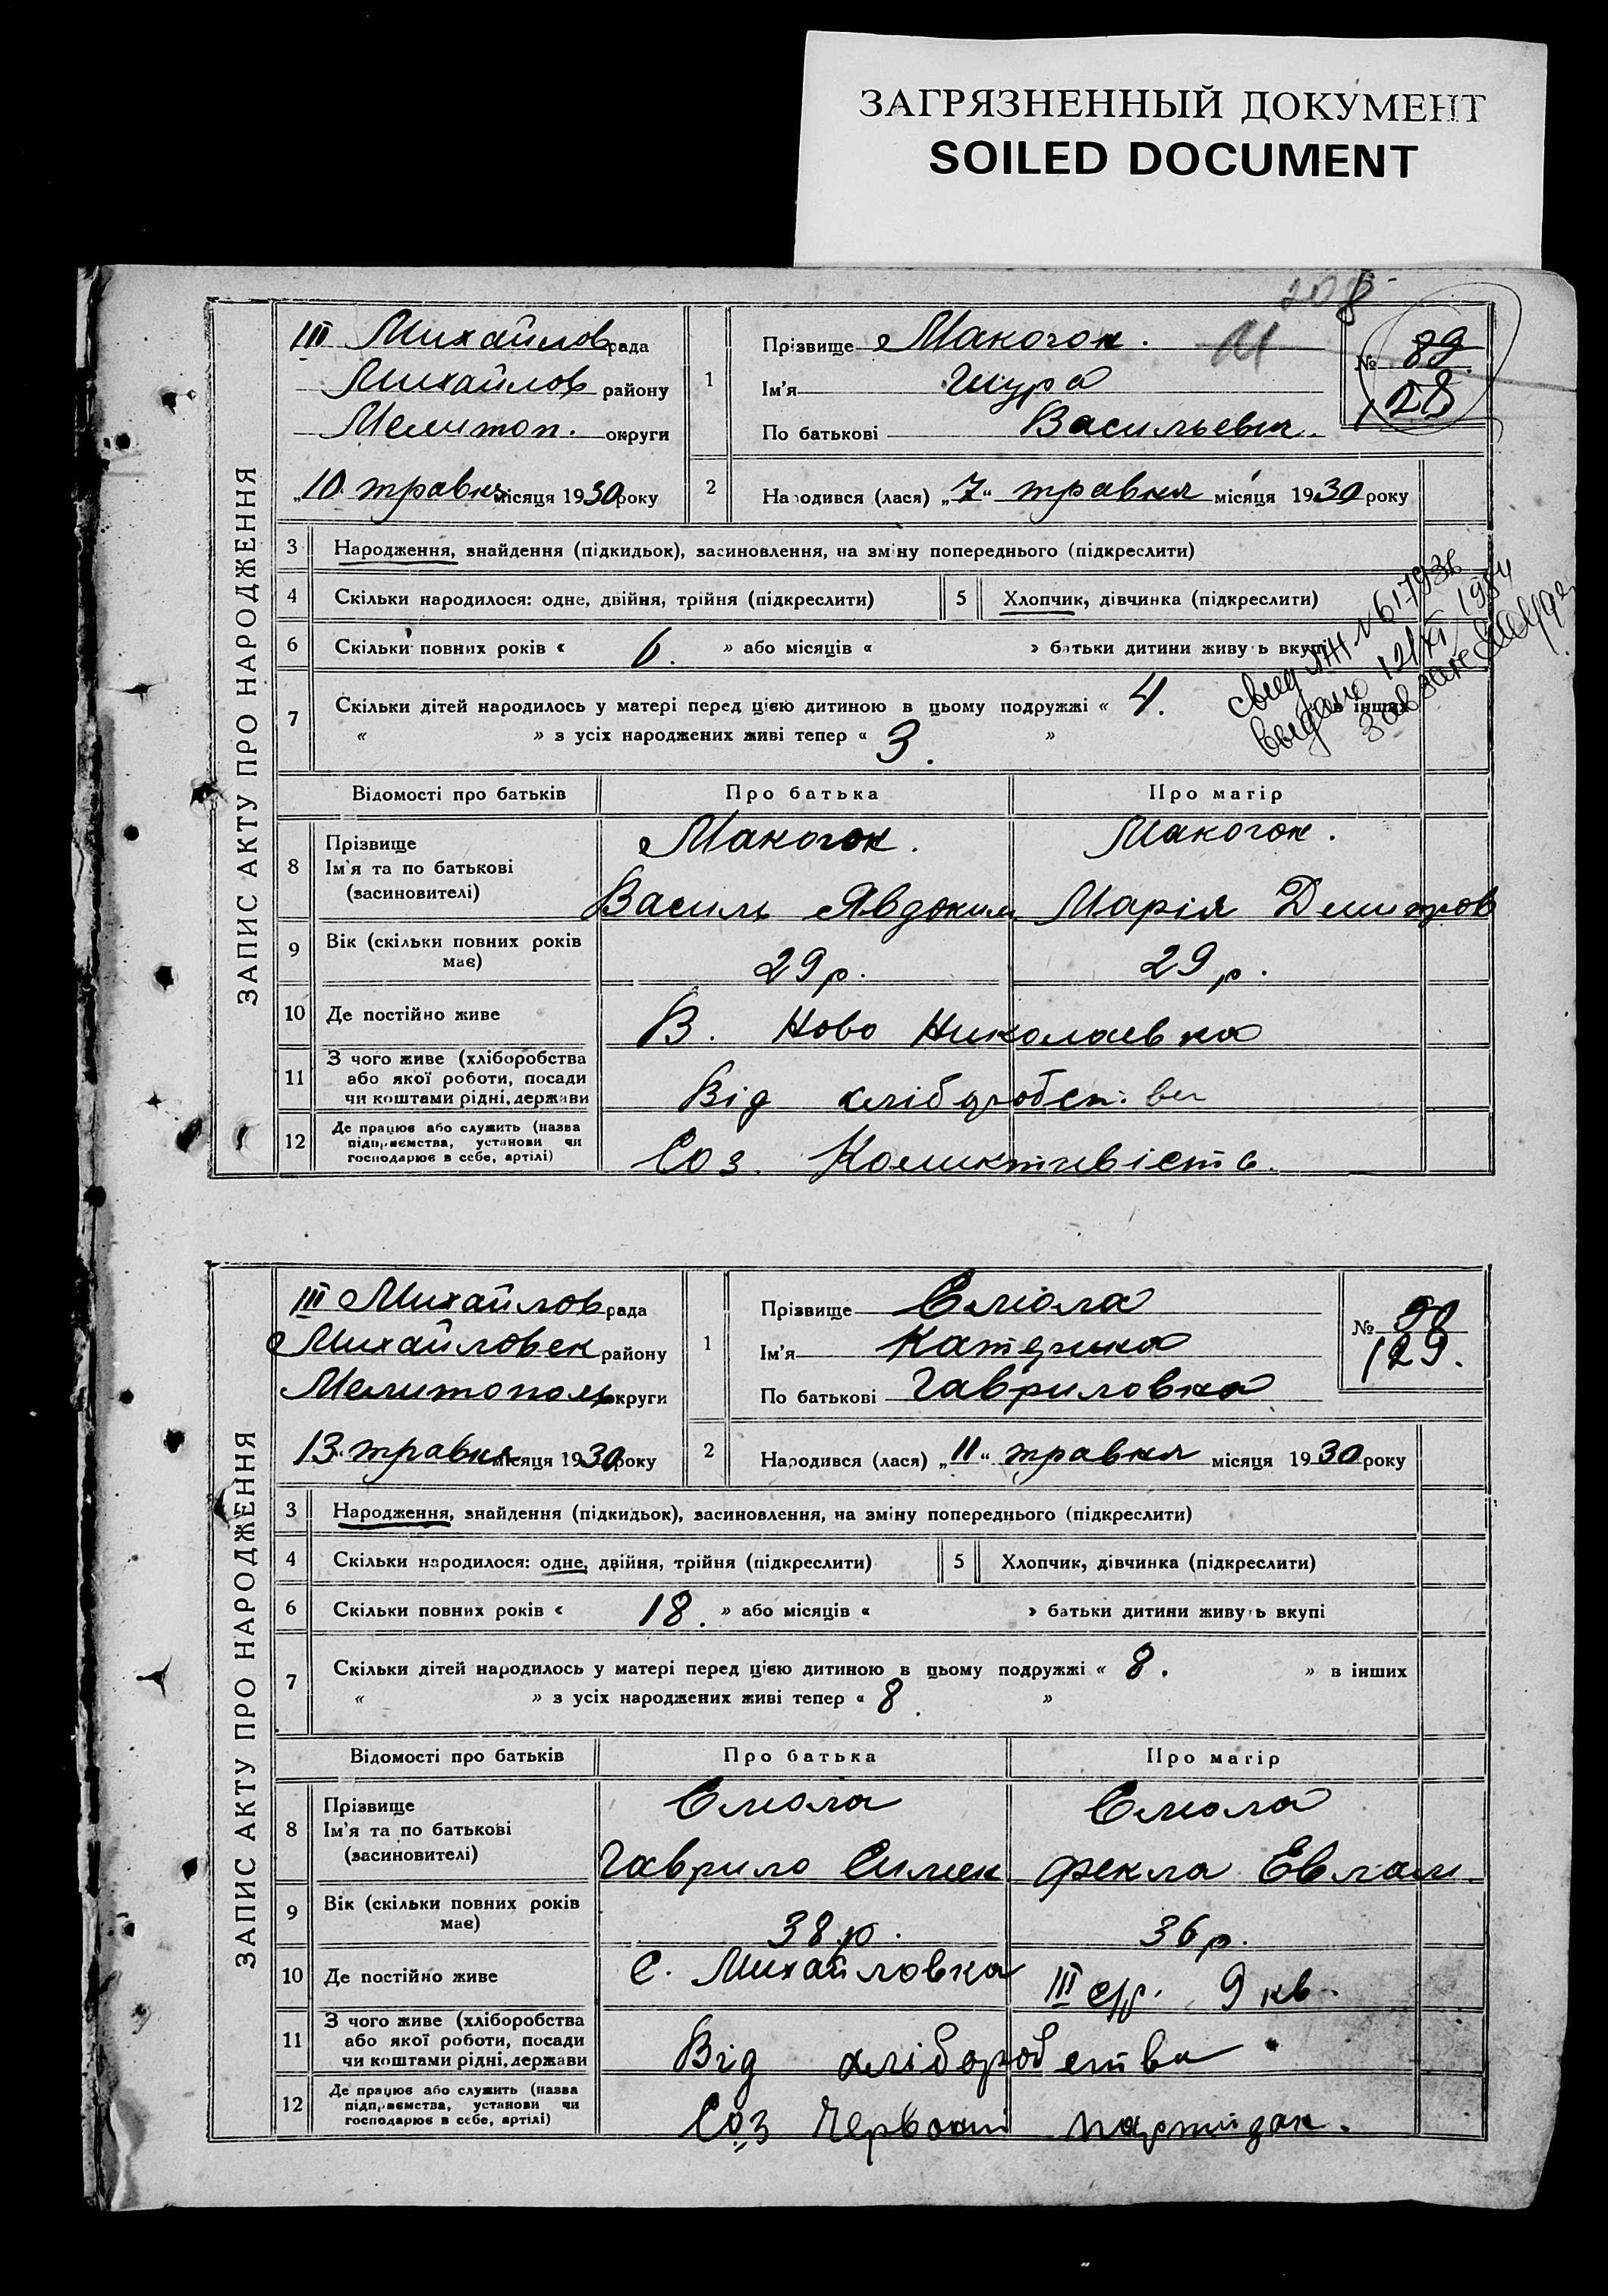 ЗАГРЯЗНЕННЫЙ ДОКУМЕНТ
SOILED DOCUMENT
208
ЗАПИС АКТУ ПРО НАРОДЖЕННЯ
III Михайлов рада
Михайлов району
Мелитоп. округи
„10 травня місяця 1930 року
1
Прізвище Макогон.
Ім'я Шура
По батькові Васильевич.
№ 89
128
2 Народився (лася) „7“ травня місяця 1930 року
3 Народження, знайдення (підкидьок), засиновлення, на зміну попереднього (підкреслити)
4 Скільки народилося: одне, двійня, трійня (підкреслити) 5 Хлопчик, дівчинка (підкреслити)
6 Скільки повних років « 6. » або місяців « » батьки дитини живуть вкупі
7 Скільки дітей народилось у матері перед цією дитиною в цьому подружжі « 4. в інших
« » з усіх народжених живі тепер « 3. »
Відомості про батьків Про батька Про матір
8 Прізвище
Ім'я та по батькові
(засиновителі)
Макогон. Макогон.
Василь Явдоким Марія Дмитров
9 Вік (скільки повних років має) 29 р. 29 р.
10 Де постійно живе В. Ново Николаевка
11 З чого живе (хліборобства
або якої роботи, посади
чи коштами рідні, держави
Від хліборобст. ва
12 Де працює або служить (назва
підприємства, установи чи
господарює в себе, артілі)
Соз. Коликтивість.
ЗАПИС АКТУ ПРО НАРОДЖЕННЯ
III Михайлов рада
Михайловск району
Мелитополь округи
13 травня місяця 1930 року
1
Прізвище Смола
Ім'я Катерина
По батькові Гавриловна
№ 90
129.
2 Народився (лася) „11“ травня місяця 1930 року
3 Народження, знайдення (підкидьок), засиновлення, на зміну попереднього (підкреслити)
4 Скільки народилося: одне, двійня, трійня (підкреслити) 5 Хлопчик, дівчинка (підкреслити)
6 Скільки повних років « 18. » або місяців « » батьки дитини живуть вкупі
7 Скільки дітей народилось у матері перед цією дитиною в цьому подружжі « 8. » в інших
« » з усіх народжених живі тепер « 8. »
Відомості про батьків Про батька Про матір
8 Прізвище
Ім'я та по батькові
(засиновителі)
Смола Смола
Гаврило Симен Фекла Евлам.
9 Вік (скільки повних років має) 38 р. 36 р.
10 Де постійно живе С. Михайловка III с/р. 9 кв.
11 З чого живе (хліборобства
або якої роботи, посади
чи коштами рідні, держави
Від хліборобства
12 Де працює або служить (назва
підприємства, установи чи
господарює в себе, артілі)
Соз Червоний партизан.